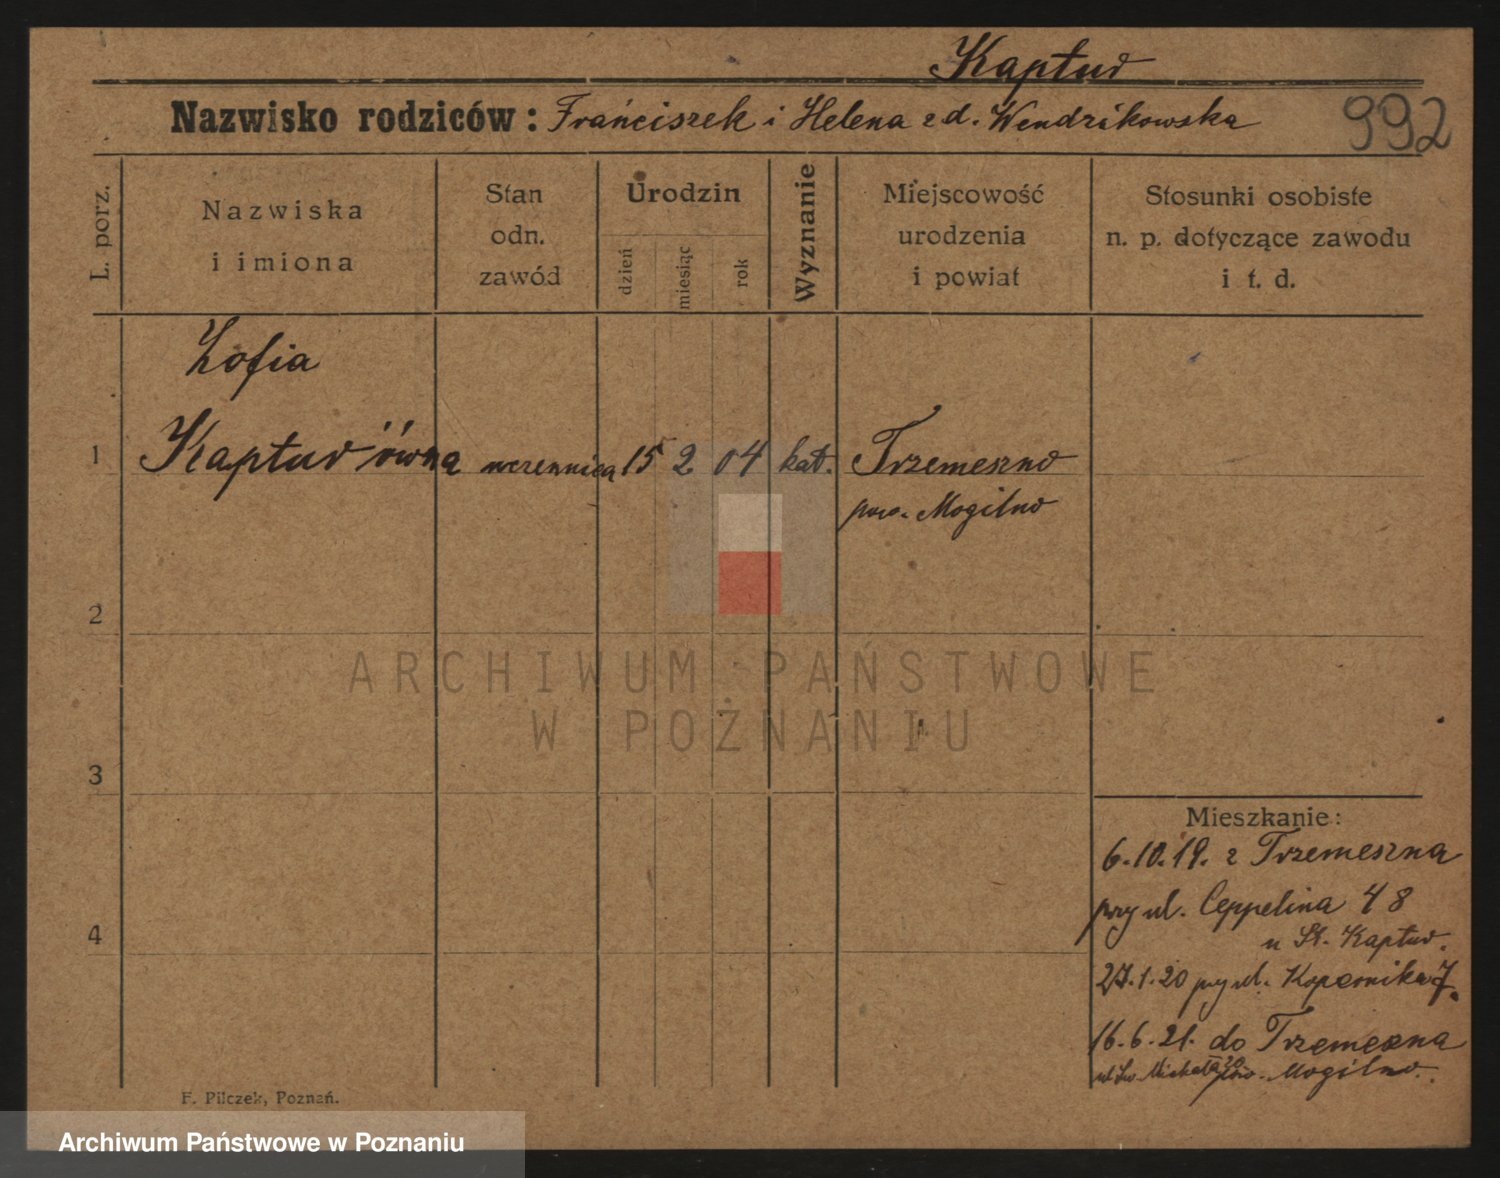 Kaptur
Nazwisko rodziców: Franciszek i Helena z d. Wendzikowska
992
L. porz.
Nazwiska
i imiona
Stan
odn.
zawód
Urodzin
dzień
miesiąc
rok
Wyznanie
Miejscowość
urodzenia
i powiat
Stosunki osobiste
n. p. dotyczące zawodu
i t. d.
Zofia
1 Kapturówna uczennica 15 2 04 kat. Trzemeszno
pow. Mogilno
2
ARCHIWUM PAŃSTWOWE
W POZNANIU
3
Mieszkanie:
6.10.19. z Trzemeszna
przy ul. Ceppelina 48
u St. Kaptur.
4
27.1.20 przy ul. Kopernika 7.
16.6.21. do Trzemeszna
ul Św. Michała 20 pow. Mogilno.
F. Pilczek, Poznań.
Archiwum Państwowe w Poznaniu